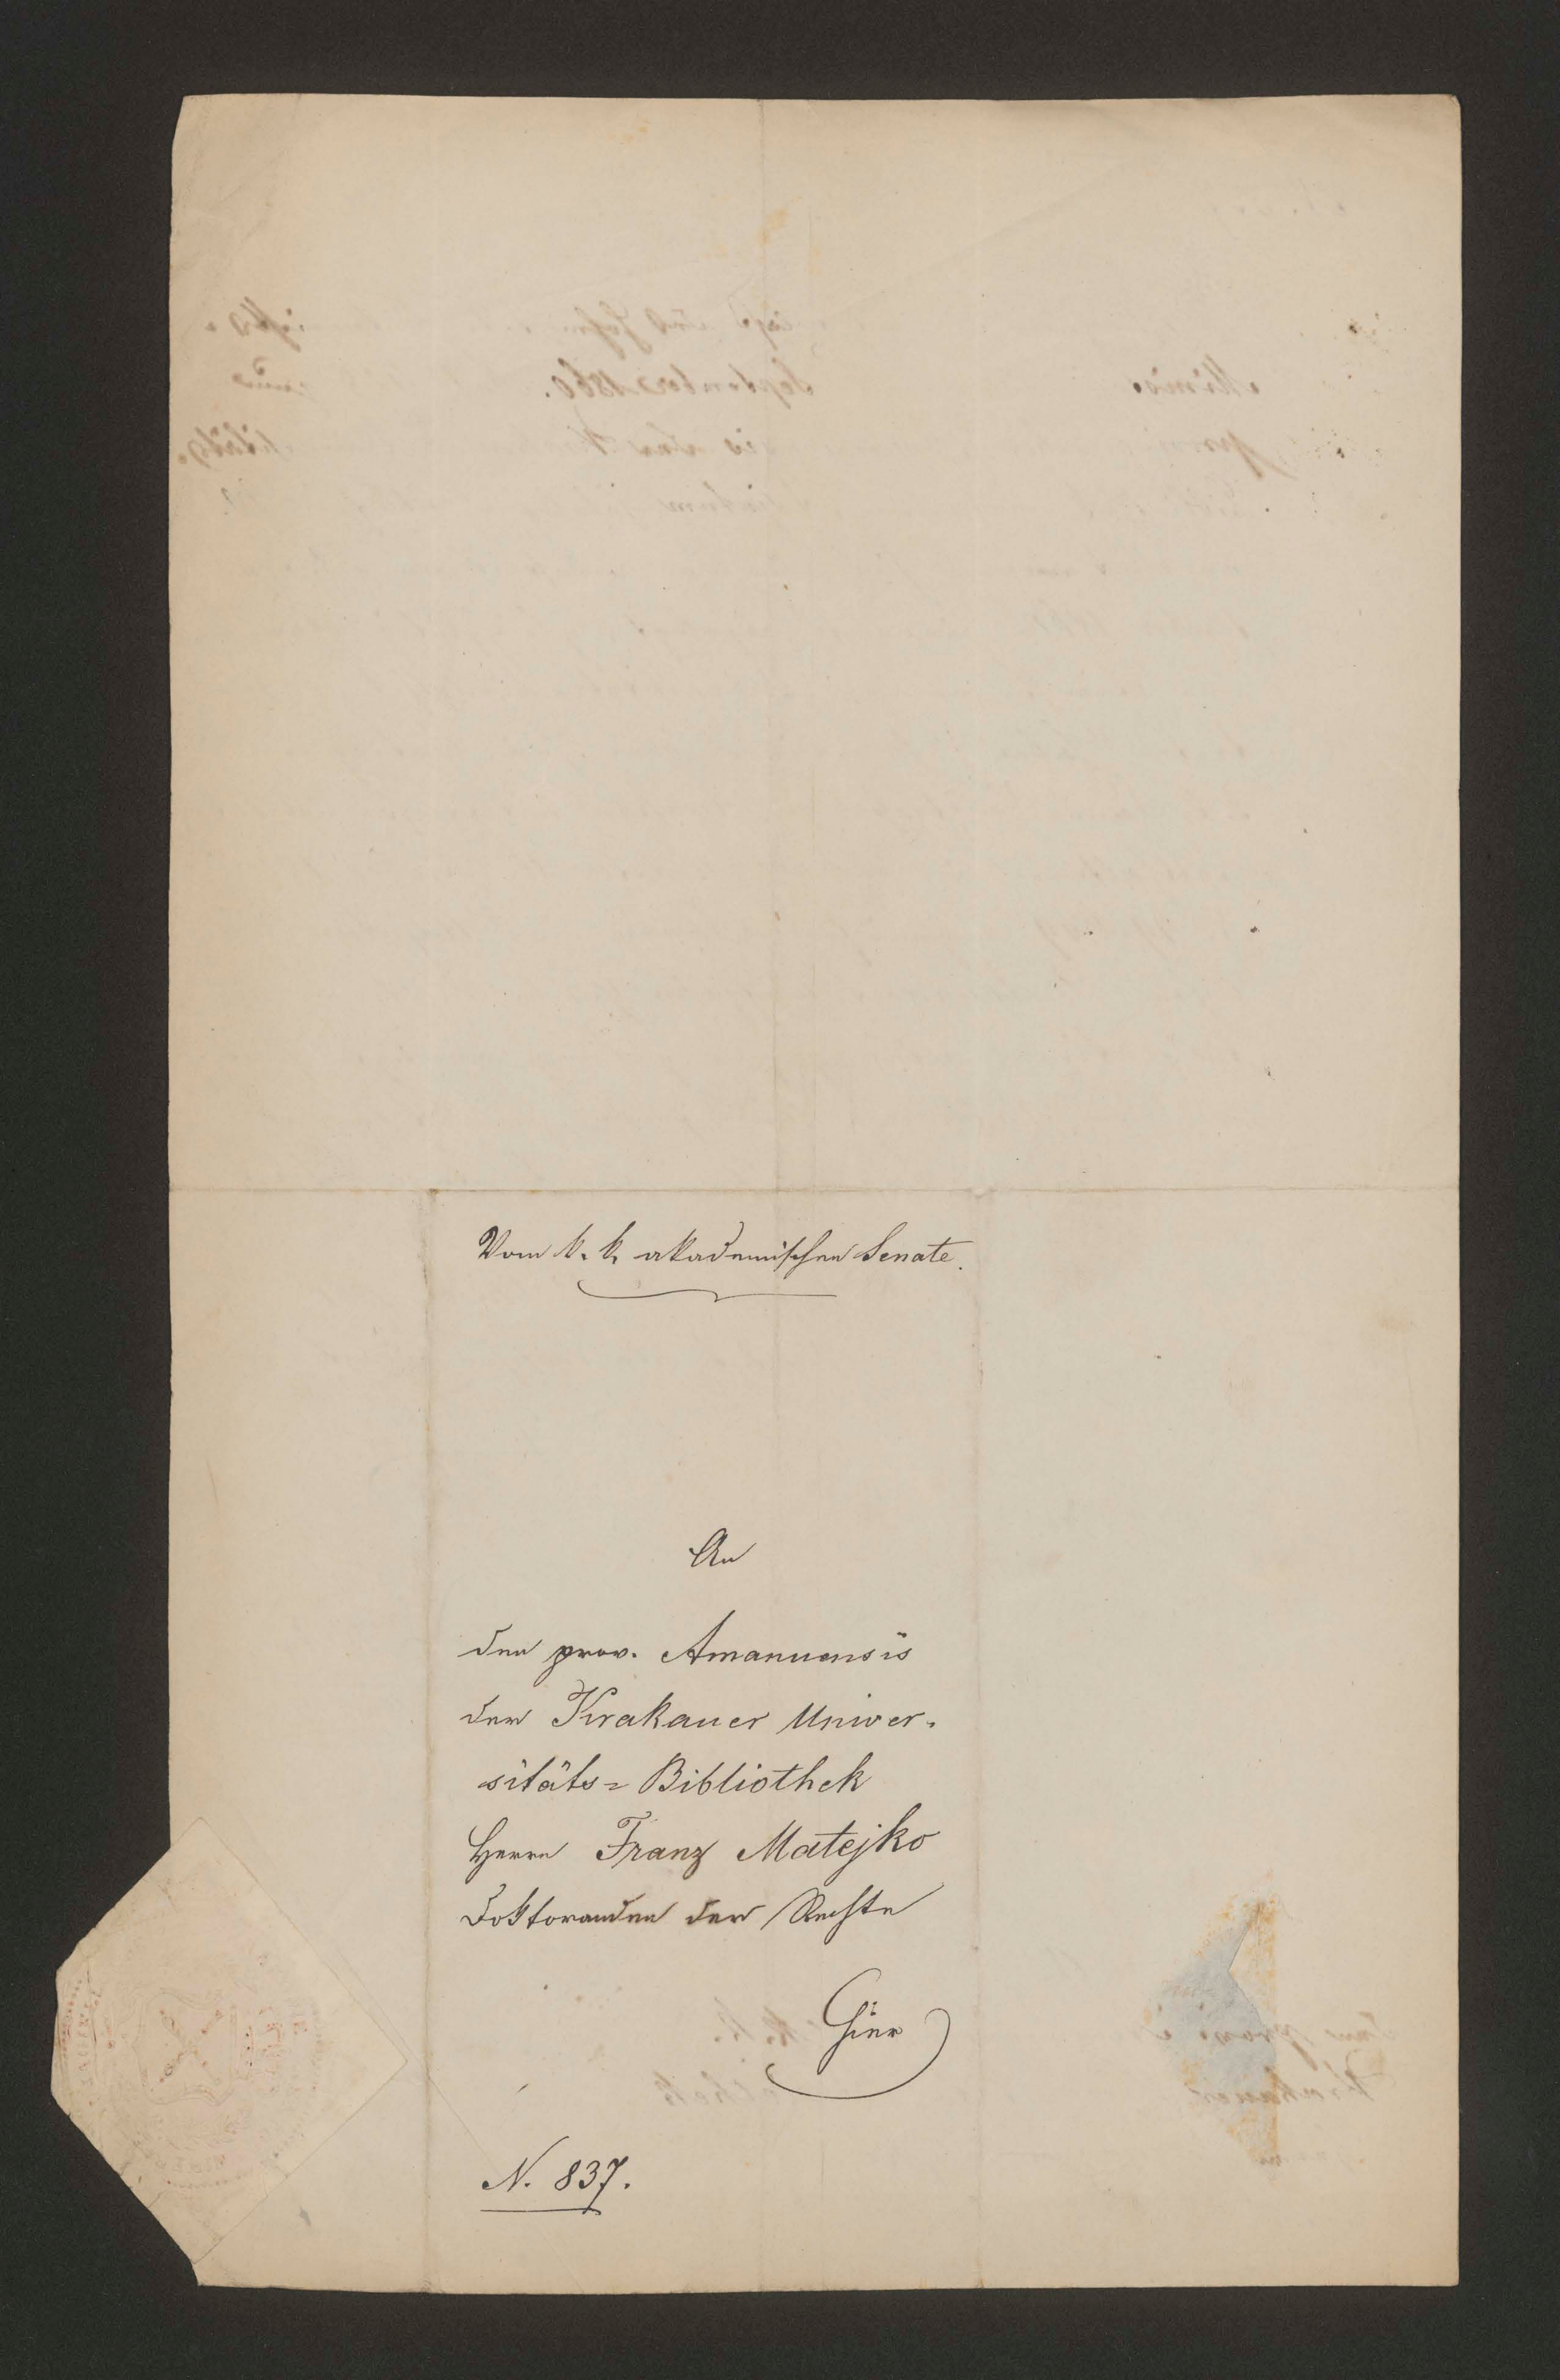 Vom k. k. akademischen Senate.
An
den prov. Amanuensis
der Krakauer Univer-
sitäts=Bibliothek
Herrn Franz Matejko
Doktoranden der Rechte
Hier
N. 837.